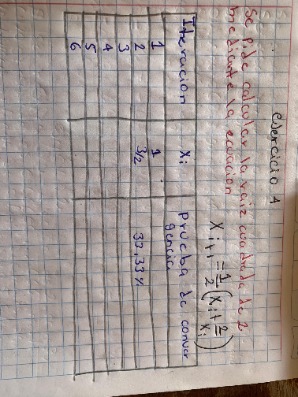 Ejercicio 1
Se pide calcular la raiz cuadrada de 2
mediante la ecuacion
Xi+1 = 1/2 (Xi + 2/Xi)
Iteracion Xi Prueba de conver
gencia
1 1
2 3/2 33,33%
3
4
5
6